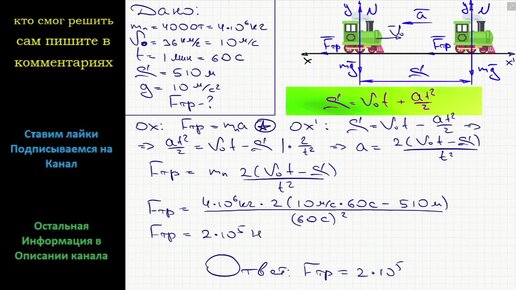 кто смог решить
сам пишите в
комментариях
Ставим лайки
Подписываемся на
Канал
Остальная
Информация в
Описании канала
Дано:
mп = 4000т = 4·10⁶кг
V₀ = 36км/с = 10м/с
t = 1мин = 60с
S = 510м
g = 10м/с²
Fтр - ?
y N a y N
V₀
x Fтр Fтр x'
mg S mg
S = V₀t + at²/2
OX: Fтр = ma OX': S = V₀t - at²/2 ⇒
⇒ at²/2 = V₀t - S | · 2/t² ⇒ a = 2(V₀t - S)/t²
Fтр = mп 2(V₀t - S)/t²
Fтр = 4·10⁶кг · 2(10м/с·60с - 510м)/(60с)²
Fтр = 2·10⁵ Н
Ответ: Fтр = 2·10⁵